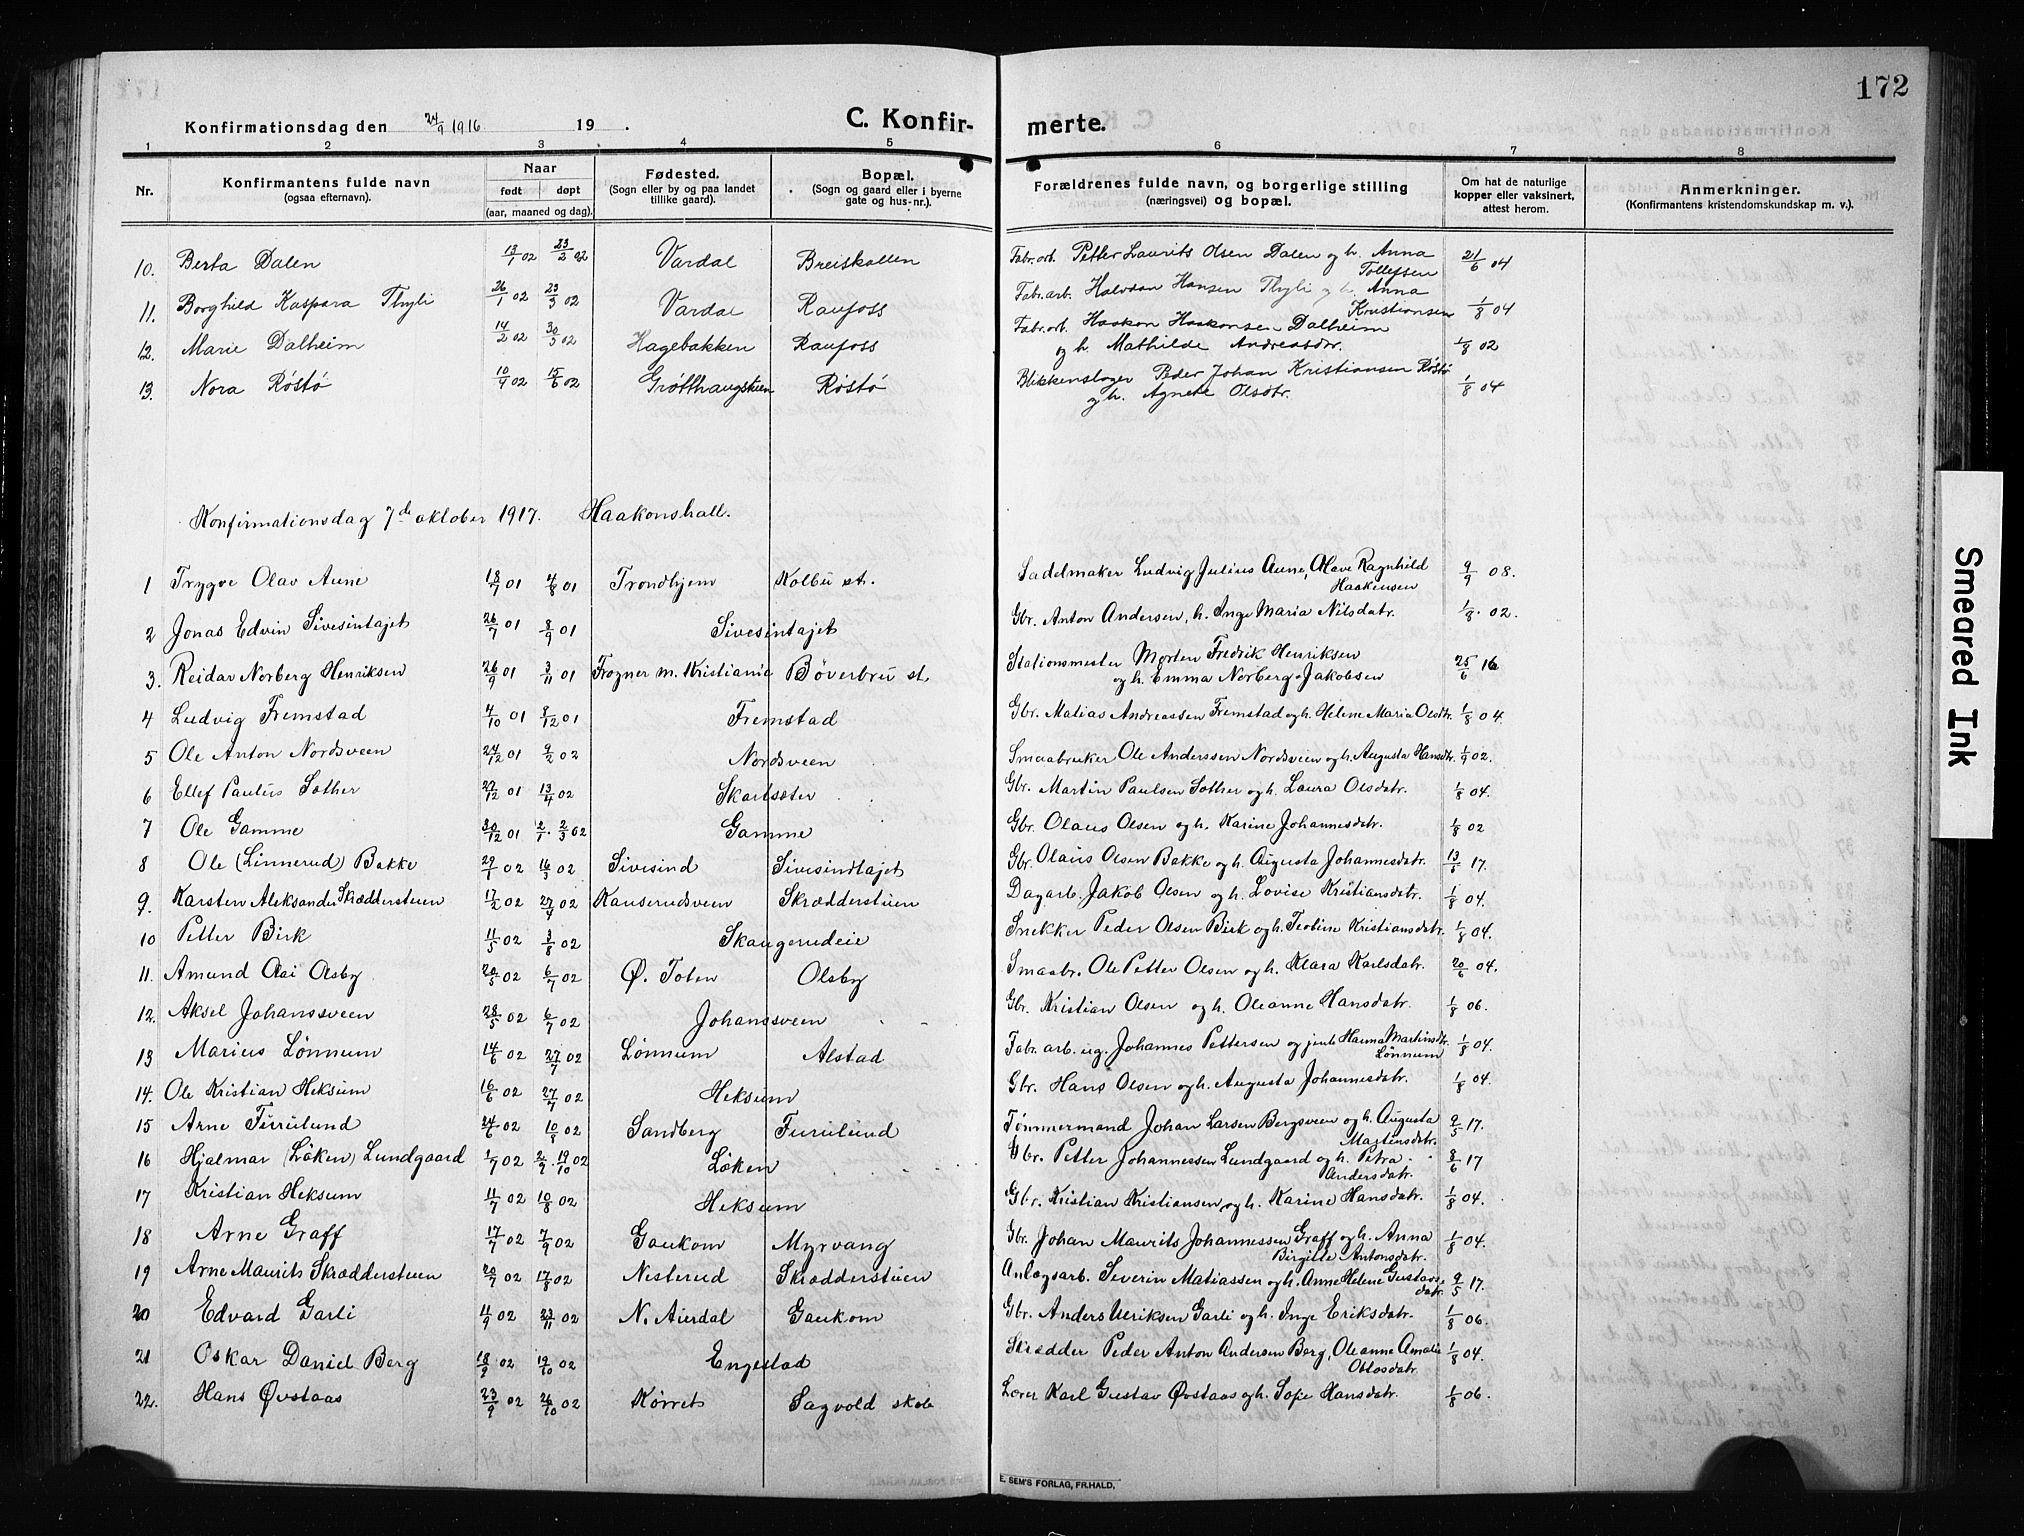 172
Konfirmationsdag den 24/9 1916 19 . C. Konfir- merte.
1 2 3 4 5 6 7 8
Nr. Konfirmantens fulde navn (ogsaa efternavn). Naar født døpt (aar, maaned og dag). Fødested. (Sogn eller by og paa landet tillike gaard). Bopæl. (Sogn og gaard eller i byerne gate og hus-nr.). Forældrenes fulde navn, og borgerlige stilling (næringsvei) og bopæl. Om hat de naturlige kopper eller vaksinert, attest herom. Anmerkninger. (Konfirmantens kristendomskundskap m. v.).
10. Berta Dalen 13/1 02 23/2 02 Vardal Breiskallen Fabr.arb. Petter Laurits Olsen Dalen og h. Anna Tollefsen 21/6 04
11. Borghild Kaspara Thyli 26/1 02 23/3 02 Vardal Raufoss Fabr.arb. Halvdan Hansen Thyli og h. Anna Kristiansen 1/8 04
12. Marie Dalheim 14/2 02 30/3 02 Hagebakken Raufoss Fabr.arb. Haakon Haakonsen Dalheim og h. Mathilde Andreasdr. 1/8 02
13. Nora Røstø 10/4 02 15/6 02 Grøtthaugstuen Røstø Blikkenslager Peder Johan Kristiansen Røstø og h. Agnete Olsdtr. 1/8 04
Konfirmationsdag 7de oktober 1917. Haakonshall.
1 Trygve Olav Aune 18/7 01 4/8 01 Trondhjem Kolbu st. Sadelmaker Ludvig Julius Aune, Olave Ragnhild Haakensen 9/9 08.
2 Jonas Edvin Sivesintajet 26/7 01 8/9 01 Sivesintajet Gbr. Anton Andersen, h. Inge Maria Nilsdatr. 1/9. 02.
3. Reidar Norberg Henriksen 26/9 01 3/11 01 Frogner m. Kristiania Bøverbru st. Stationsmester Morten Fredrik Henriksen og h. Emma Norberg Jakobsen 25/6 16
4 Ludvig Fremstad 4/10 01 8/12 01 Fremstad Gbr. Matias Andreassen Fremstad og h. Helene Maria Olsdtr. 1/8 04.
5 Ole Anton Nordsveen 24/12 01 9/2 02 Nordsveen Smaabruker Ole Anderssen Nordsveen og h. Augusta Hansdtr. 1/9 02.
6 Ellef Paulus Sother 27/12 01 13/4 02 Skartsæter Gbr. Martin Paulsen Sother og h. Laura Olsdatr. 1/8 04.
7 Ole Gamme 30/12 01 2/1. 2/3 02 Gamme Gbr. Olaus Olsen og h. Karine Johannesdatr. 1/8 02
8 Ole (Linnerud) Bakke 29/1 02 16/3 02 Sivesind Sivesindtajet Gbr. Olaus Olsen Bakke og h. Augusta Johannesdatr. 13/6 17.
9. Karsten Aleksander Skrædderstuen 17/2 02 27/4 02 Kanserudsveen Skrædderstuen Dagarb. Jakob Olsen og h. Lovise Kristiansdatr. 1/8 04.
10 Petter Birk 11/5 02 3/8 02 Skaugerudeie Snekker Peder Olsen Birk og h. Teoline Kristiansdatr. 1/8 04.
11. Amund Oai Olsby 20/5 02 6/7 02 Ø. Toten Olsby Smaabr. Ole Petter Olsen og h. Klara Karlsdatr. 20/6 04.
12. Aksel Johanssveen 28/5 02 6/7 02 Johanssveen Gbr. Kristian Olsen og h. Oleanne Hansdatr. 1/8 06.
13 Marius Lønnum 14/6 02 27/7 02 Lønnum Alstad Fabr. arb. ug. Johannes Pettersen og jente Hanna Martinsdtr. Lønnum 1/8 04.
14. Ole Kristian Heksum 16/6 02 27/7 02 Heksum Gbr. Hans Olsen og h. Augusta Johannesdatr. 1/8 04.
15 Arne Furulund 24/6 02 10/8 02 Sandberg Furulund Tømmermand Johan Larsen Bergsveen og h. Augusta Martensdatr. 9/5 17.
16 Hjalmar (Løken) Lundgaard 1/7 02 2/9. 19/10 02 Løken Gbr. Petter Johannessen Lundgaard og h. Petra Andersdatr. 8/6 17
17 Kristian Heksum 11/7 02 10/8 02 Heksum Gbr. Kristian Kristiansen og h. Karine Hansdatr. 1/8 04.
18 Arne Graff 17/7 02 7/9 02 Gaukom Myrvang Gbr. Johan Maurits Johannessen Graff og h. Anna Birgitte Antonsdatr. 1/8 04.
19 Arne Maurits Skrædderstuen 20/7 02 17/8 02 Nesterud Skrædderstuen Anlægsarb. Severin Matiassen og h. Anne Helene Gustavsdatr. 9/5 17.
20 Edvard Garli 4/9 02 23/11 02 N. Aurdal Gaukom Gbr. Anders Ulriksen Garli og h. Inge Eriksdatr. 1/8 06.
21 Oskar Daniel Berg 18/9 02 19/10 02 Engestad Skrædder Peder Anton Andersen Berg, Oleanne Amalie Ottosdatr. 1/8 04.
22. Hans Øvstaas 23/9 02 26/10 02 Kørret Sagvold skole Lærer Karl Gustav Øvstaas og h. Sofie Hansdatr. 1/8 06.
E. SEM'S FORLAG, FR.HALD.
Smeared Ink